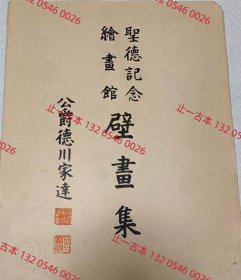 聖德記念
繪畫館
壁畫集
公爵德川家達
止一古本 132 0546 0026
止一古本 132 0546 0026
止一古本 132 0546 0026
止一古本 132 0546 0026
止一古本 132 0546 0026